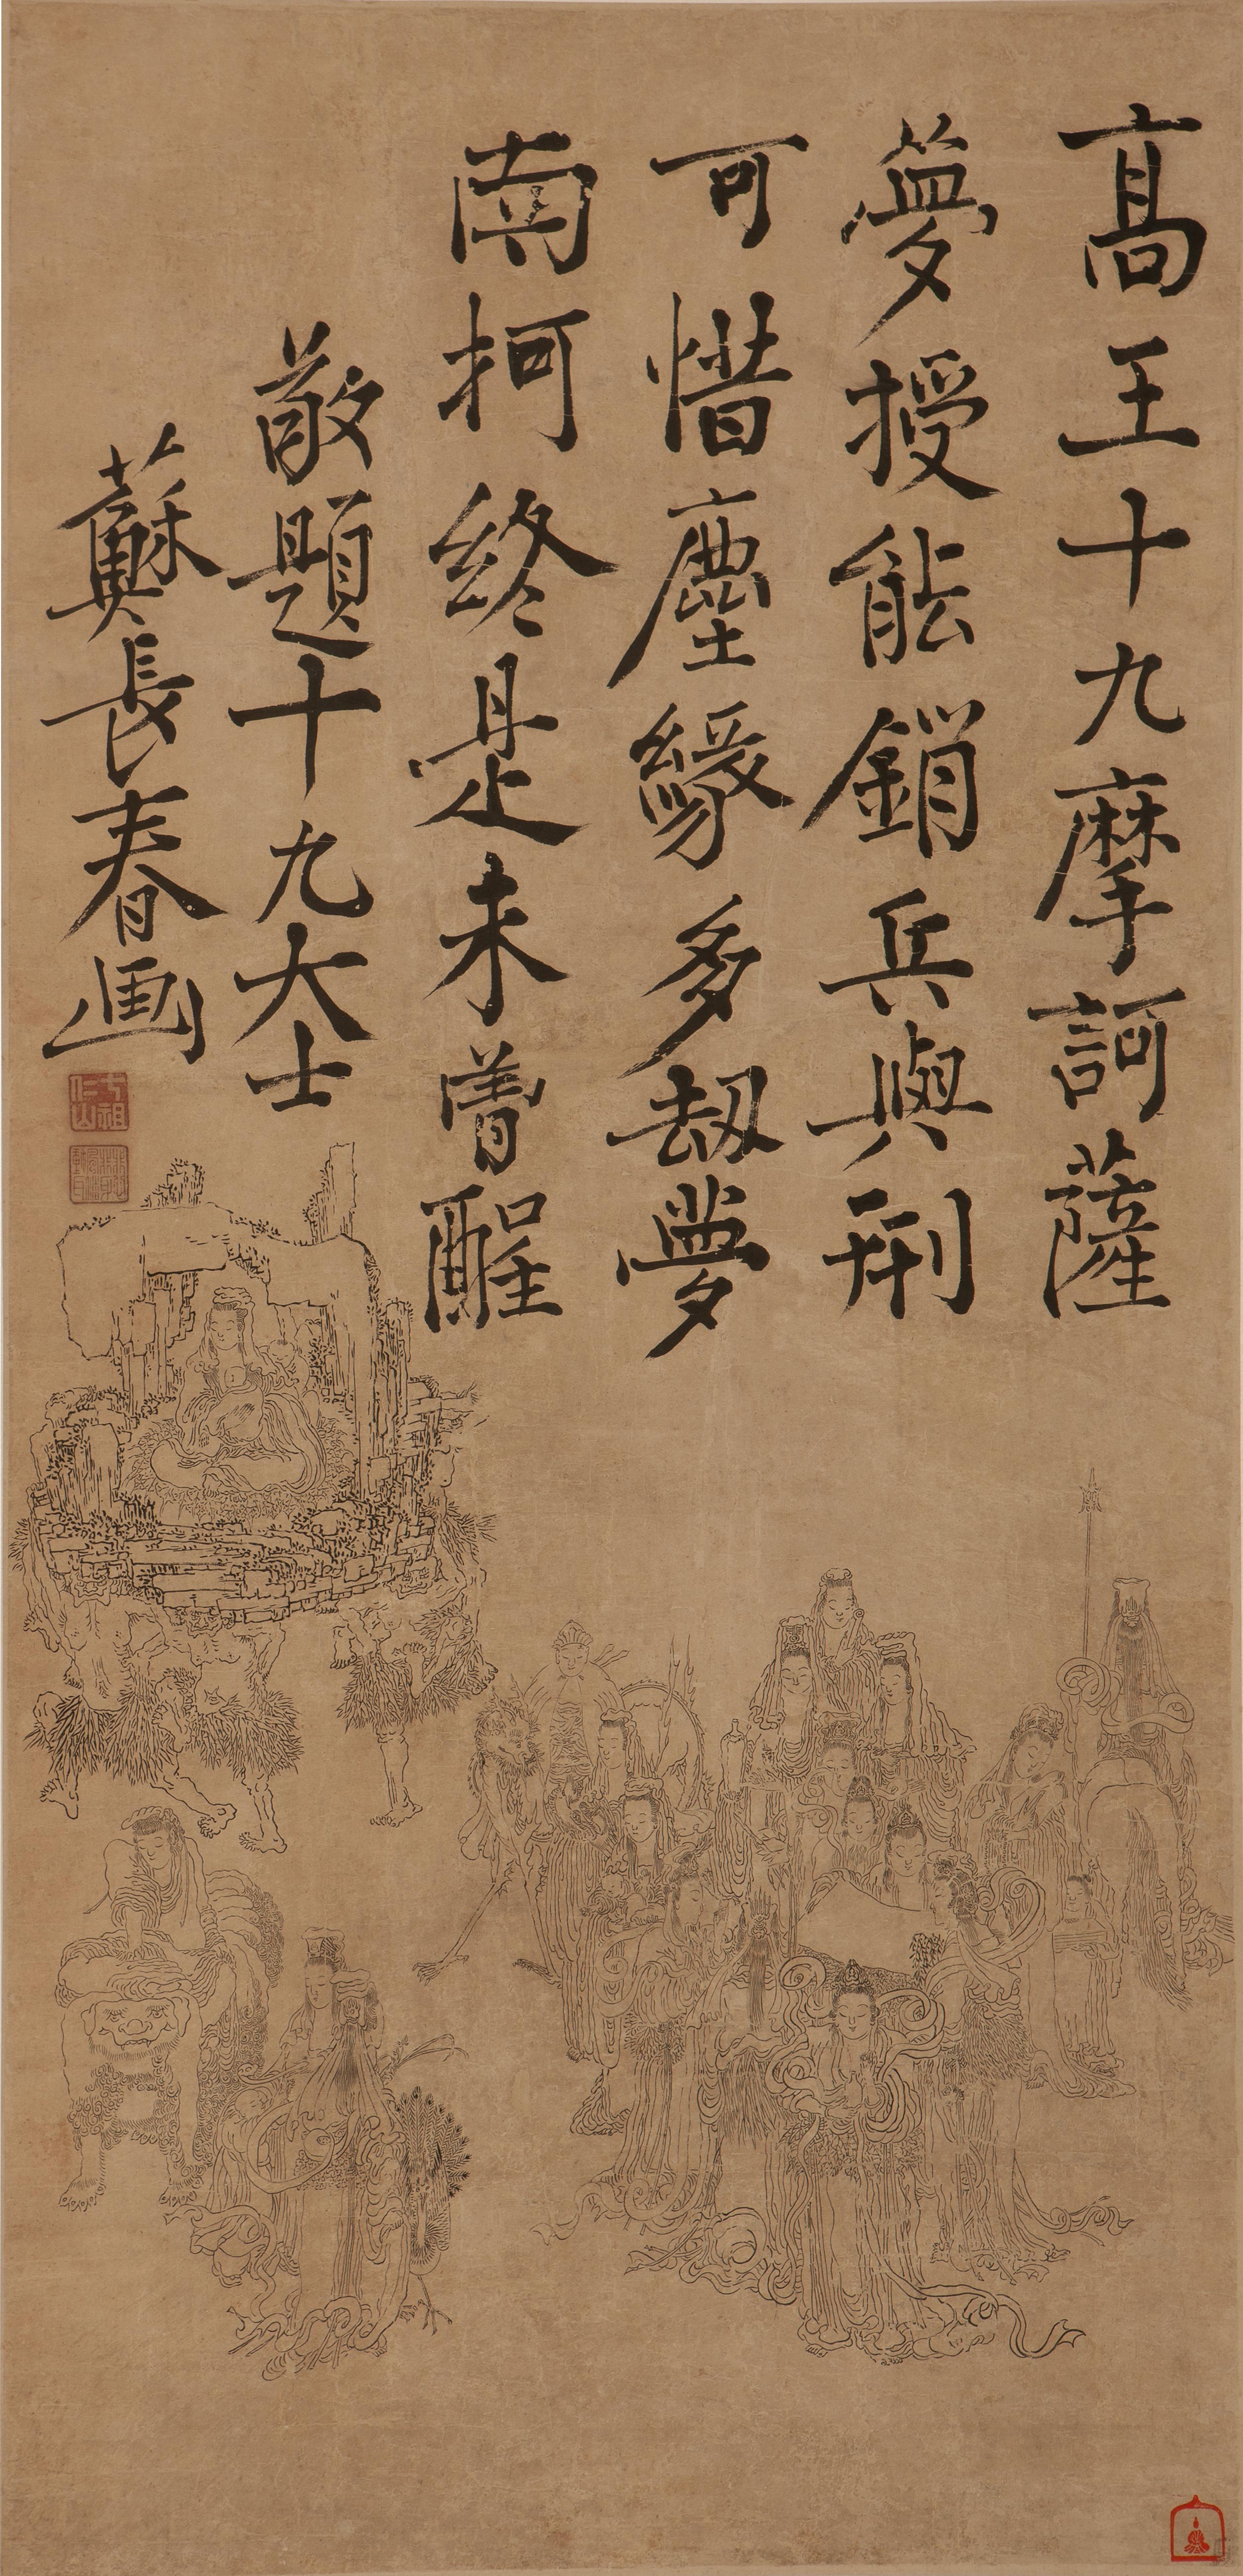 高王十九摩訶薩
夢授能銷兵與刑
可惜塵緣多刼夢
南柯終是未曾醒
敬題十九大士
蘇長春画
七祖仁山